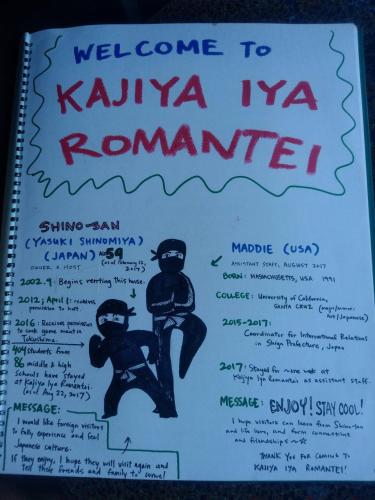 WELCOME TO
KAJIYA IYA
ROMANTEI
SHINO-SAN
(YASUKI SHINOMIYA)
(JAPAN) AGE 59
(as of February 12, 2017)
OWNER & HOST
2002.9: Begins renting this house.
2012; April: receives
permission to host.
2016: Receives permission
to cook game meat in
Tokushima.
404 students from
86 middle & high
schools have stayed
at Kajiya Iya Romantei.
(as of Aug 22, 2017)
MESSAGE:
I would like foreign visitors
to fully experience and feel
Japanese culture.
If they enjoy, I hope they will visit again and
tell their friends and family to come!
MADDIE (USA)
ASSISTANT STAFF, AUGUST 2017
BORN: MASSACHUSETTS, USA 1991
COLLEGE: University of California,
SANTA CRUZ
Art/Japanese)
2015-2017:
Coordinator for International Relations
in Shiga Prefecture, Japan
2017: Stayed for one week at
Kajiya Iya Romantei as assistant staff.
MESSAGE: ENJOY! STAY COOL!
I hope visitors can learn from Shino-san
and life here, and form connections
and friendships
THANK YOU FOR COMING TO
KAJIYA IYA ROMANTEI!